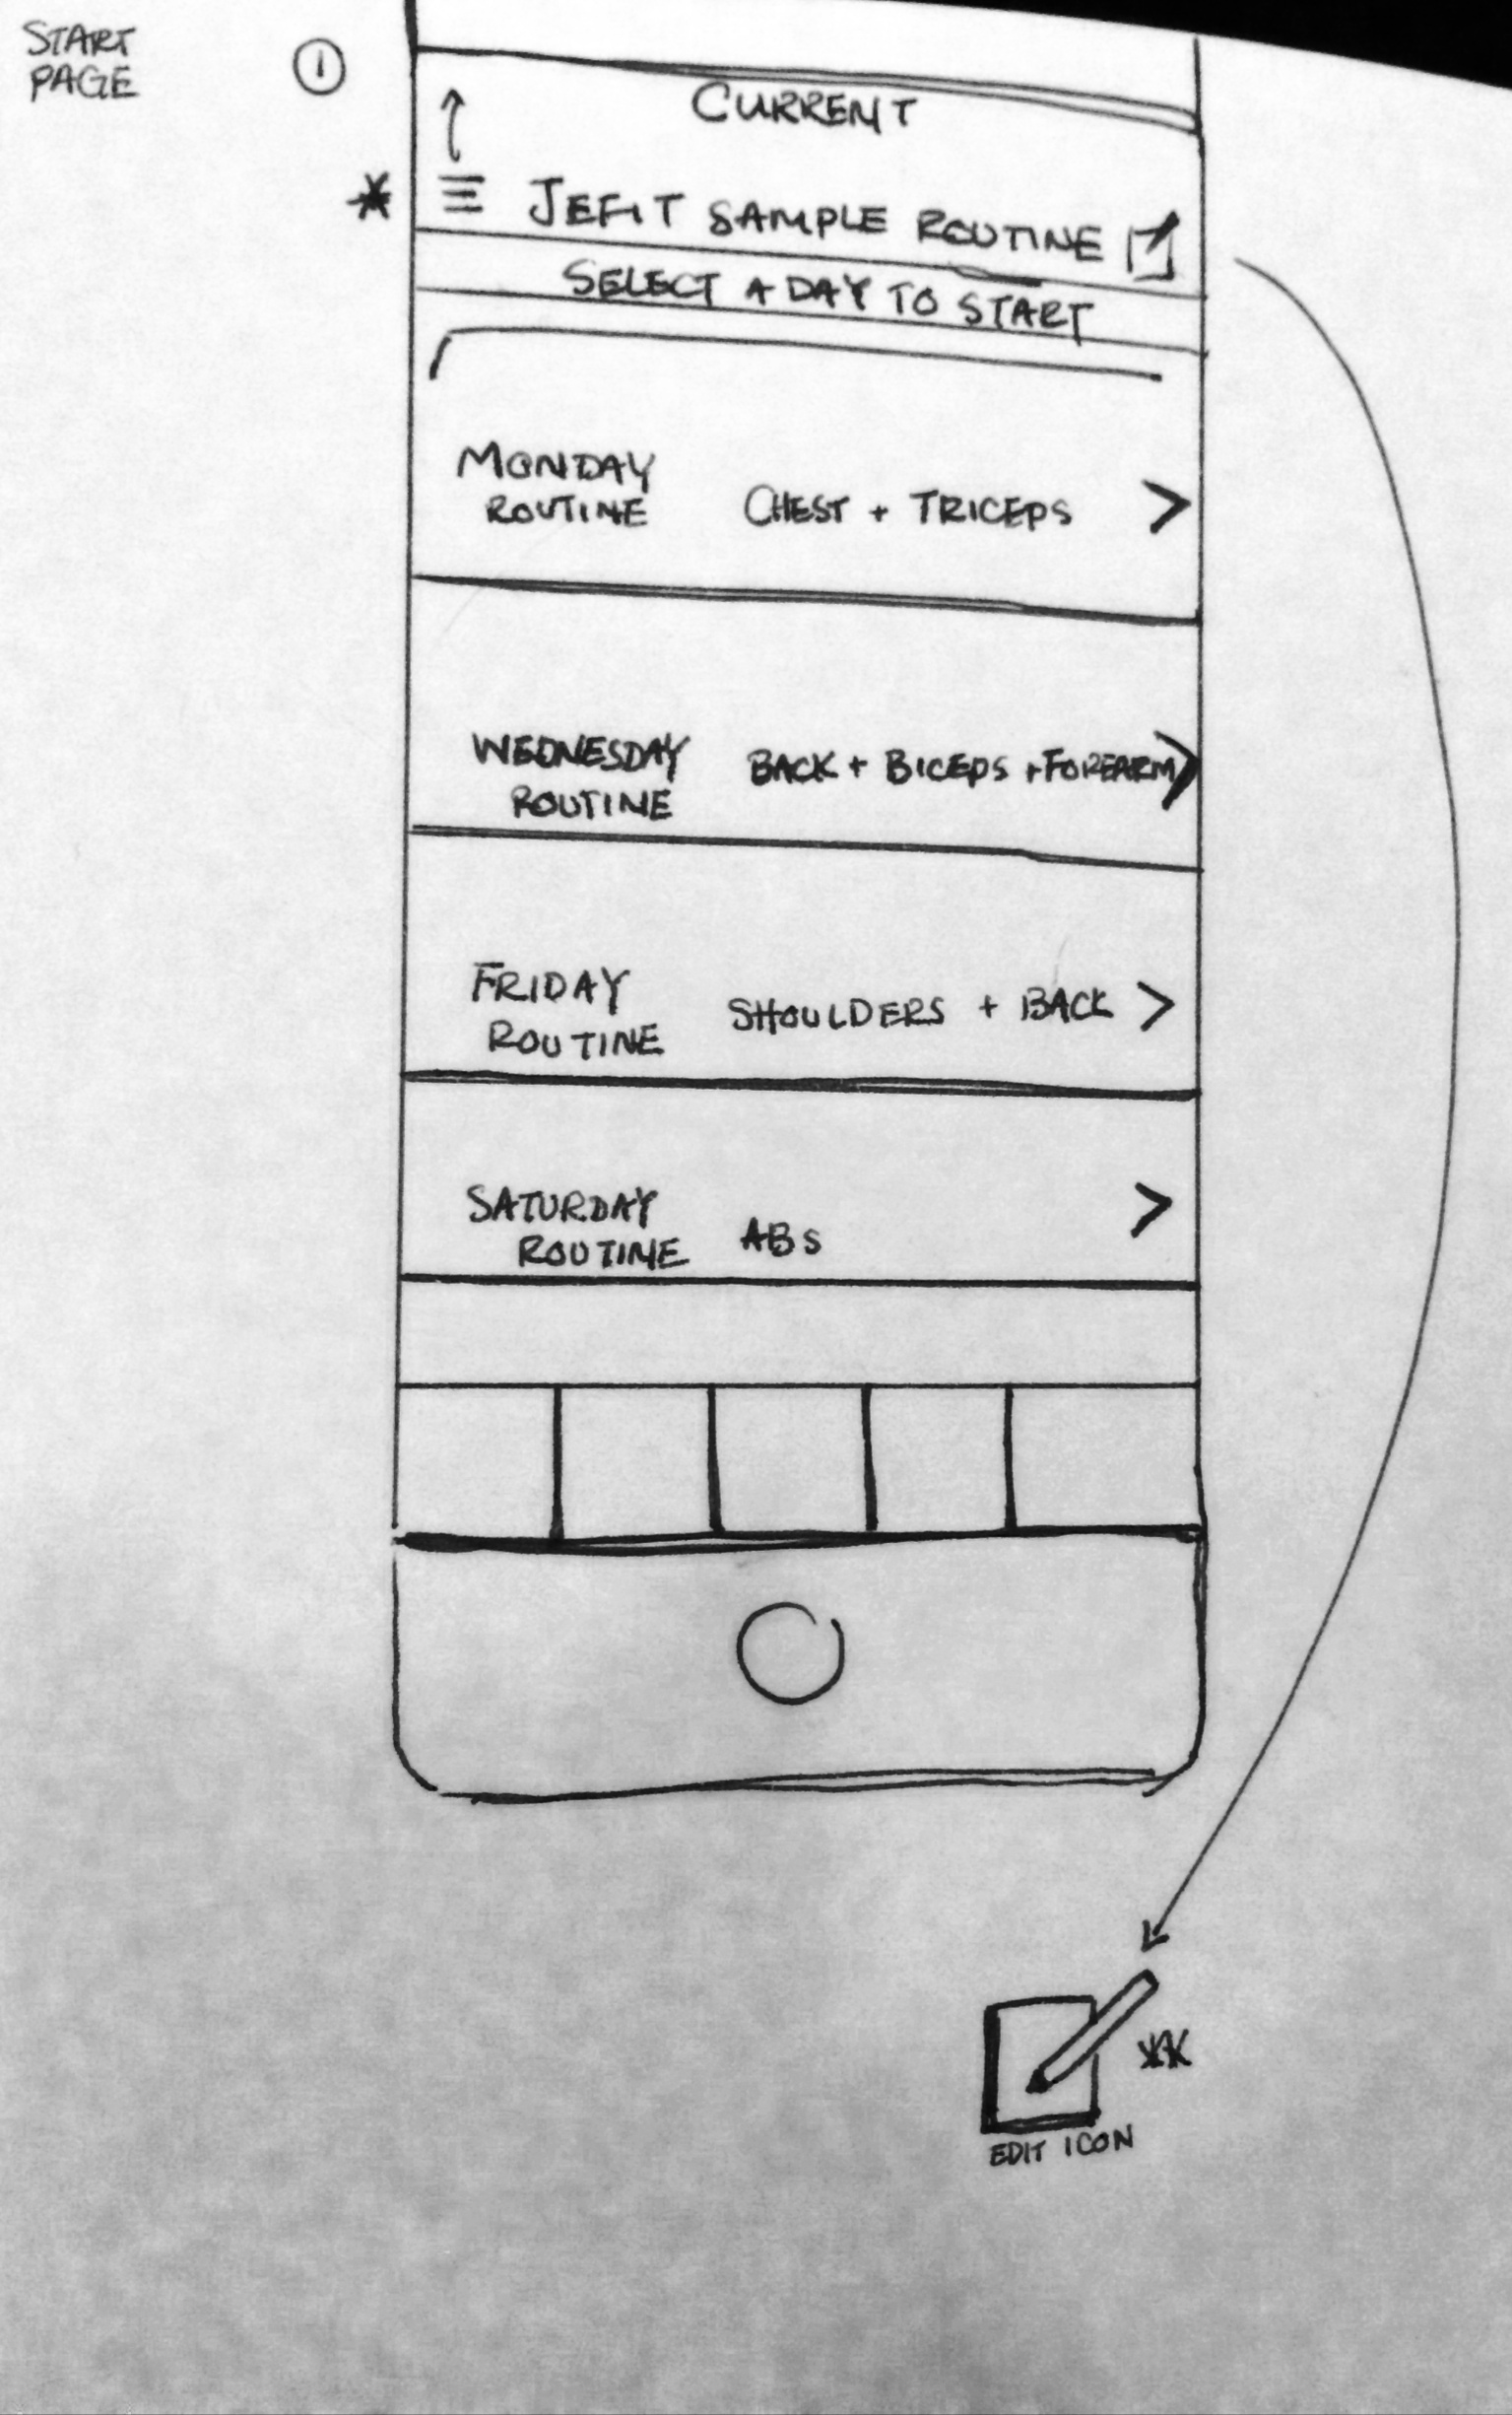 START
PAGE
1
CURRENT
* JEFIT SAMPLE ROUTINE
SELECT A DAY TO START
MONDAY
ROUTINE
CHEST + TRICEPS >
WEDNESDAY
ROUTINE
BACK + BICEPS + FOREARM >
FRIDAY
ROUTINE
SHOULDERS + BACK >
SATURDAY
ROUTINE
ABS >
**
EDIT ICON